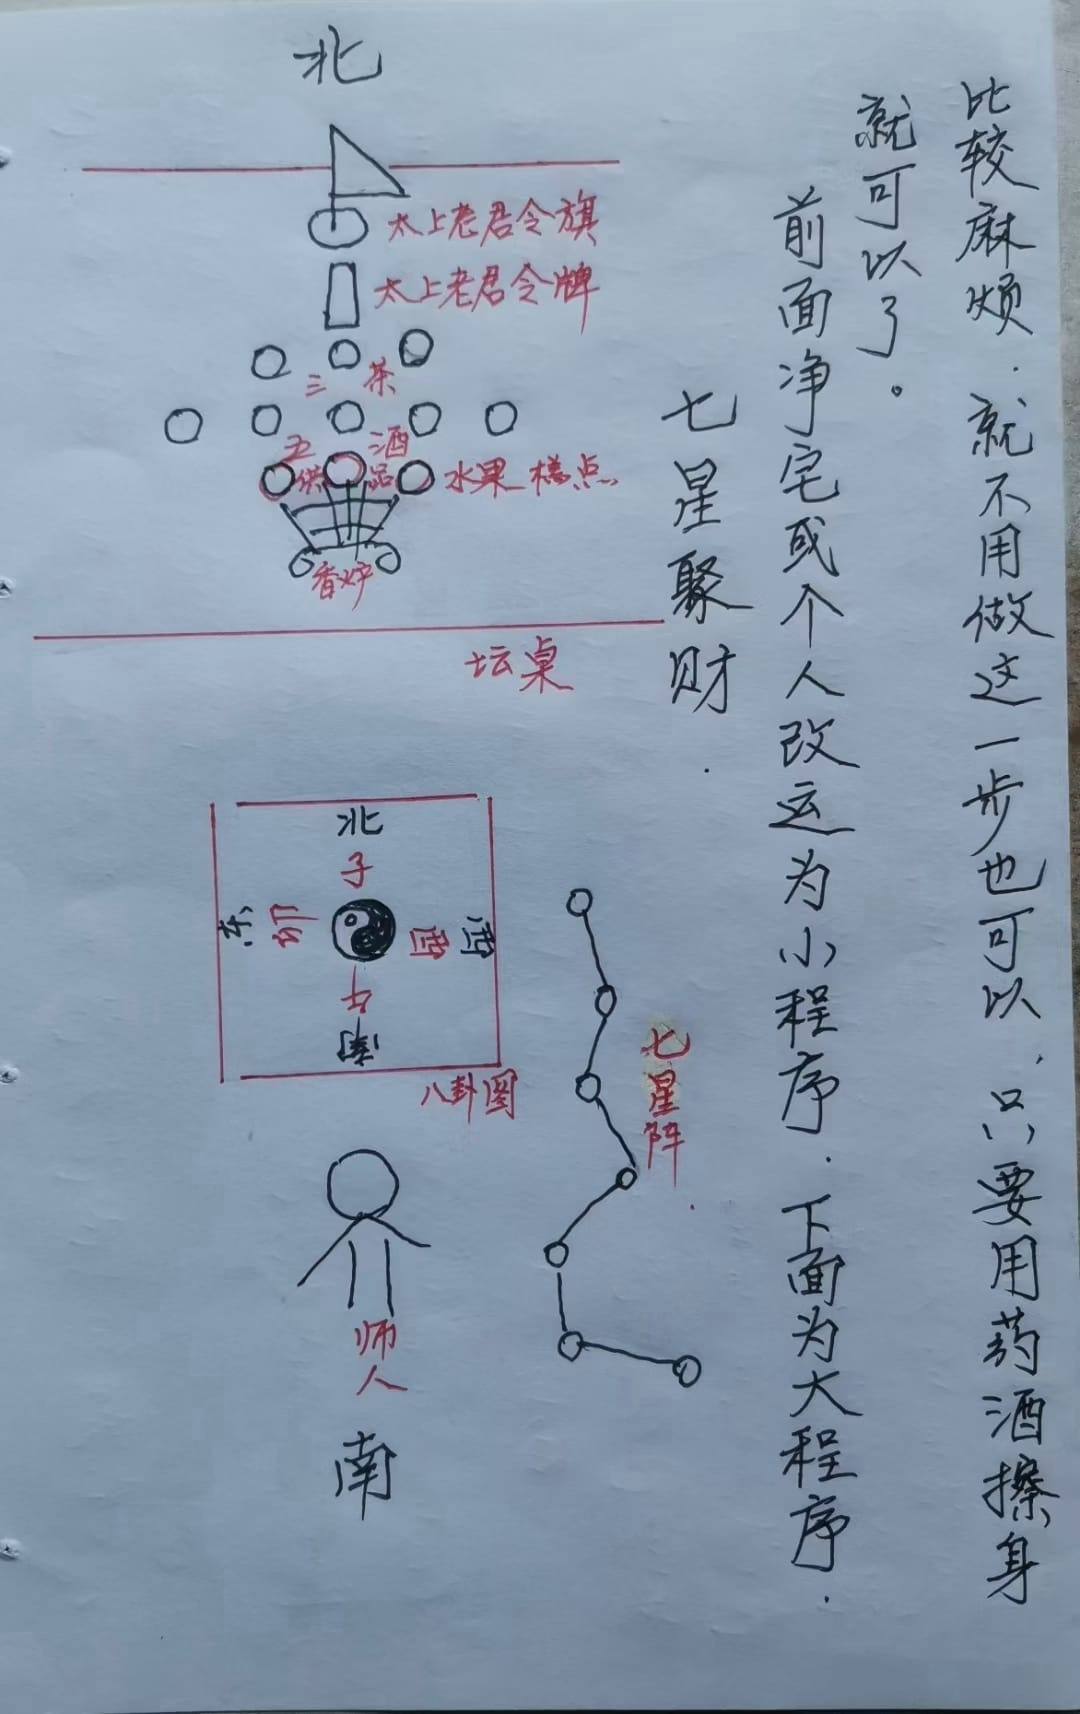 比较麻烦.就不用做这一步也可以.只要用药酒擦身
就可以了。
前面净宅或个人改运为小程序.下面为大程序.
七星聚财
北
太上老君令旗
太上老君令牌
三茶
五酒
供品
水果 糕点
香炉
坛桌
北
子
东
卯
酉
西
午
南
八卦图
七星阵
师人
南